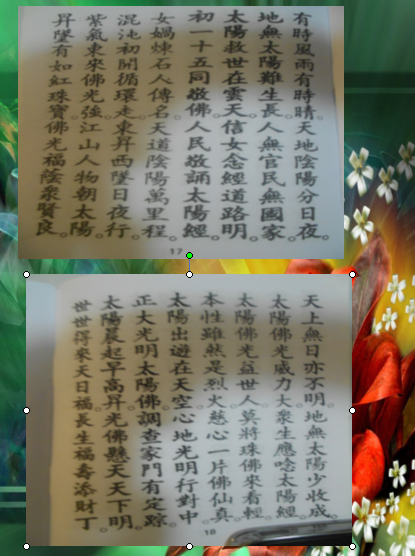 有時風雨有時晴。天地陰陽分日夜。
地無太陽難生長。人無官民無國家。
太陽救世在雲天。信女念經道路明。
初一十五同敬佛。人民敬誦太陽經。
女媧煉石人傳名。天道陰陽萬里程。
混沌初開循環走。東昇西墜日夜行。
紫氣東來佛光強。江山人物朝太陽。
昇墜有如紅珠寶。佛光福蔭衆賢良。
17
天上無日亦不明。地無太陽少收成。
太陽佛光威力大。衆生應唸太陽經。
太陽佛光益世人。莫將珠佛來看輕。
本性雖然是烈火。慈心一片佛仙真。
太陽出遊在天空。心地光明行對中。
正大光明太陽佛。調查家門有定踪。
太陽晨起早高昇。光佛懸天天下明。
世世得來天日福。長生福壽添財丁。
18